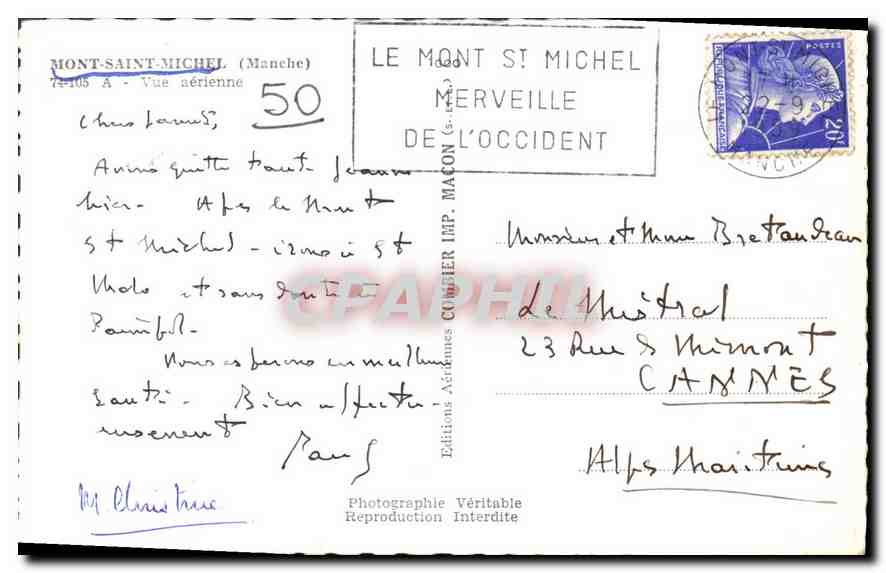 MONT-SAINT-MICHEL (Manche)
74-105 A - Vue aérienne
50
Chers
Avons quitté
hier - Après le Mont
St Michel - irons à St
Malo et sans doute
Paimpol -
Nous espérons en meilleure
Santé - Bien affectu-
eusement
M. Christine
LE MONT ST MICHEL
MERVEILLE
DE L'OCCIDENT
POSTES
20F
MANCHE
Editions Aériennes COMBIER IMP. MACON (S.-&-L.)
Monsieur et Mme Bretaudeau
Le Mistral
23 Rue de Mimont
CANNES
Alpes Maritimes
Photographie Véritable
Reproduction Interdite
CPAPHIL